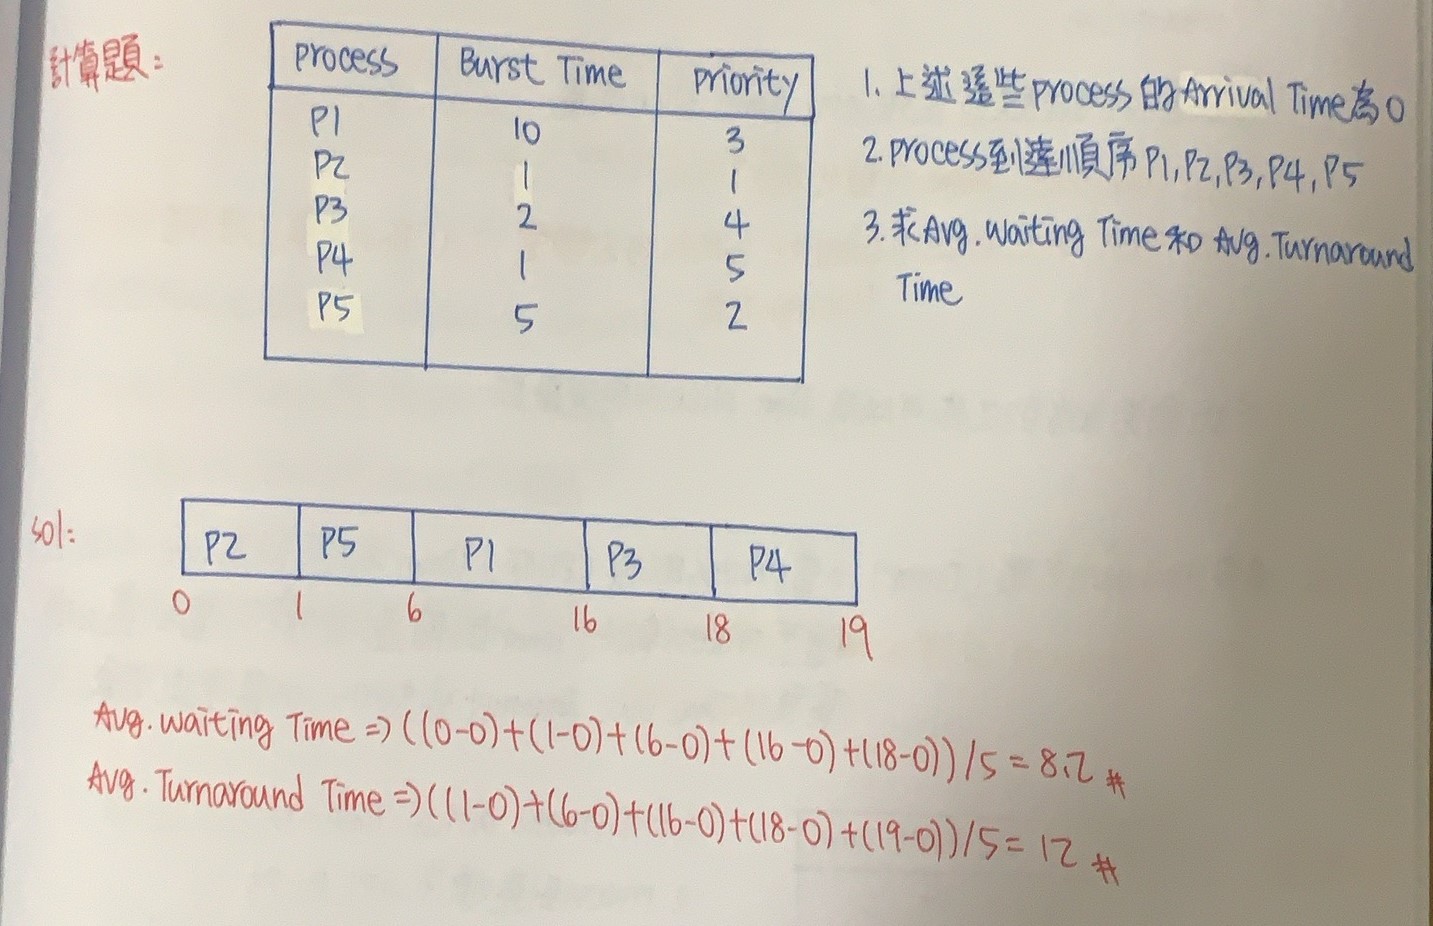 計算題:
Process Burst Time Priority
P1 10 3
P2 1 1
P3 2 4
P4 1 5
P5 5 2
1. 上述這些process的Arrival Time為0
2. process到達順序P1,P2,P3,P4,P5
3. 求Avg.waiting Time和Avg.Turnaround
Time
sol:
P2 P5 P1 P3 P4
0 1 6 16 18 19
Avg.waiting Time => ((0-0)+(1-0)+(6-0)+(16-0)+(18-0))/5=8.2 #
Avg.Turnaround Time =>((1-0)+(6-0)+(16-0)+(18-0)+(19-0))/5=12 #